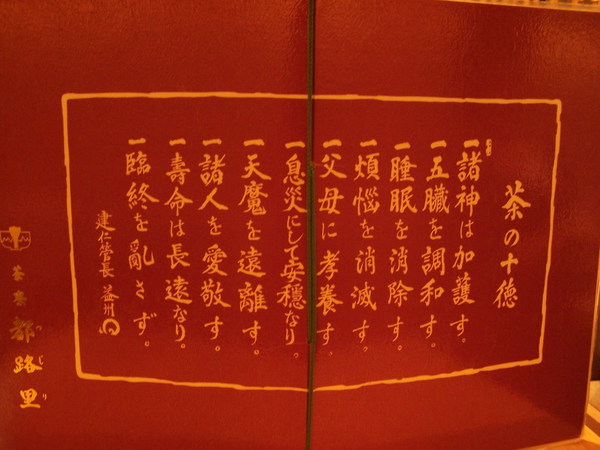 茶の十徳
一諸神は加護す。
一五臓を調和す。
一睡眠を消除す。
一煩悩を消滅す。
一父母に孝養す。
一息災にして安穏なり。
一天魔を遠離す。
一諸人を愛敬す。
一壽命は長遠なり。
一臨終を亂さず。
建仁管長 益州
茶寮 都路里
つじり